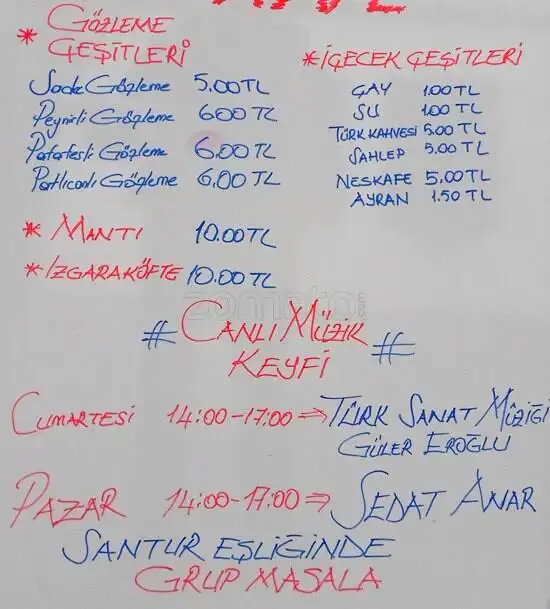 * GÖZLEME
ÇEŞİTLERİ
Sade Gözleme 5.00TL
Peynirli Gözleme 6.00 TL
Patatesli Gözleme 6.00 TL
Patlıcanlı Gözleme 6.00 TL
* MANTI 10.00TL
* IZGARA KÖFTE 10.00TL
* İÇECEK ÇEŞİTLERİ
ÇAY 1.00TL
SU 1.00 TL
TÜRK KAHVESİ 5.00TL
SAHLEP 5.00 TL
NESKAFE 5.00TL
AYRAN 1.50 TL
zomato
# CANLI MÜZİK #
KEYFİ
CUMARTESİ 14:00-17:00 ⇒ TÜRK SANAT MÜZİĞİ
GÜLER EROĞLU
PAZAR 14:00-17:00 ⇒ SEDAT ANAR
SANTUR EŞLİĞİNDE
GRUP MASALA